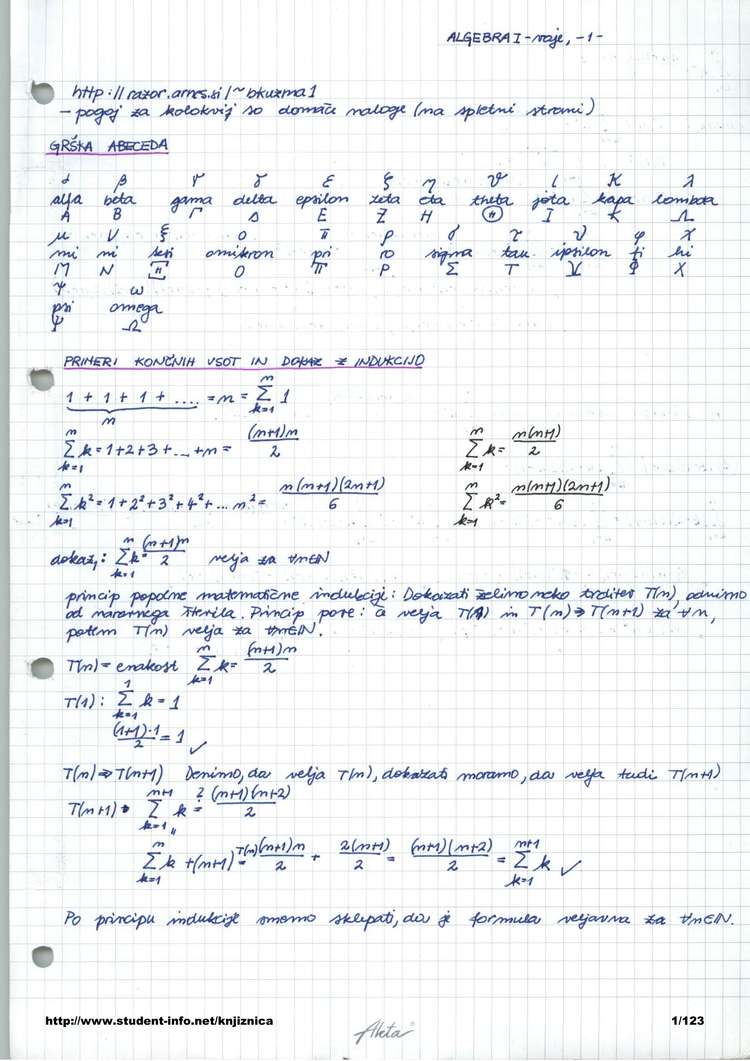 ALGEBRA I - vaje, -1-
http://razor.arnes.si/~bkuzma1
- pogoj za kolokvij so domače naloge (na spletni strani)
GRŠKA ABECEDA
α β γ δ ε ξ η ϑ ι κ λ
alfa beta gama delta epsilon zeta eta theta jota kapa lambda
A B Γ Δ E Z H Θ I K Λ
μ ν ξ o π ρ σ τ υ φ χ
mi ni ksi omikron pi ro sigma tau ipsilon fi hi
M N Ξ O Π P Σ T Υ Φ X
ψ ω
psi omega
Ψ Ω
PRIMERI KONČNIH VSOT IN DOKAZ Z INDUKCIJO
1 + 1 + 1 + .... = n = ∑_{k=1}^{n} 1
n
∑_{k=1}^{n} k = 1+2+3+ ... +n = (n+1)n / 2 ∑_{k=1}^{n} k = n(n+1) / 2
∑_{k=1}^{n} k² = 1+2²+3²+4²+ ... n² = n(n+1)(2n+1) / 6 ∑_{k=1}^{n} k² = n(n+1)(2n+1) / 6
dokaz₁: ∑_{k=1}^{n} k = (n+1)n / 2 velja za ∀n∈ℕ
princip popolne matematične indukcije: Dokazati želimo neko trditev T(n), odvisno
od naravnega števila. Princip pove: če velja T(1) in T(n) ⇒ T(n+1) za ∀n,
potem T(n) velja za ∀n∈ℕ.
T(n) = enakost ∑_{k=1}^{n} k = (n+1)n / 2
T(1): ∑_{k=1}^{1} k = 1
(1+1)·1 / 2 = 1 ✓
T(n) ⇒ T(n+1) Denimo, da velja T(n), dokazati moramo, da velja tudi T(n+1)
T(n+1): ∑_{k=1}^{n+1} k ?= (n+1)(n+2) / 2
∑_{k=1}^{n} k + (n+1) =T(n) (n+1)n / 2 + 2(n+1) / 2 = (n+1)(n+2) / 2 = ∑_{k=1}^{n+1} k ✓
Po principu indukcije smemo sklepati, da je formula veljavna za ∀n∈ℕ.
http://www.student-info.net/knjiznica 1/123
Akta